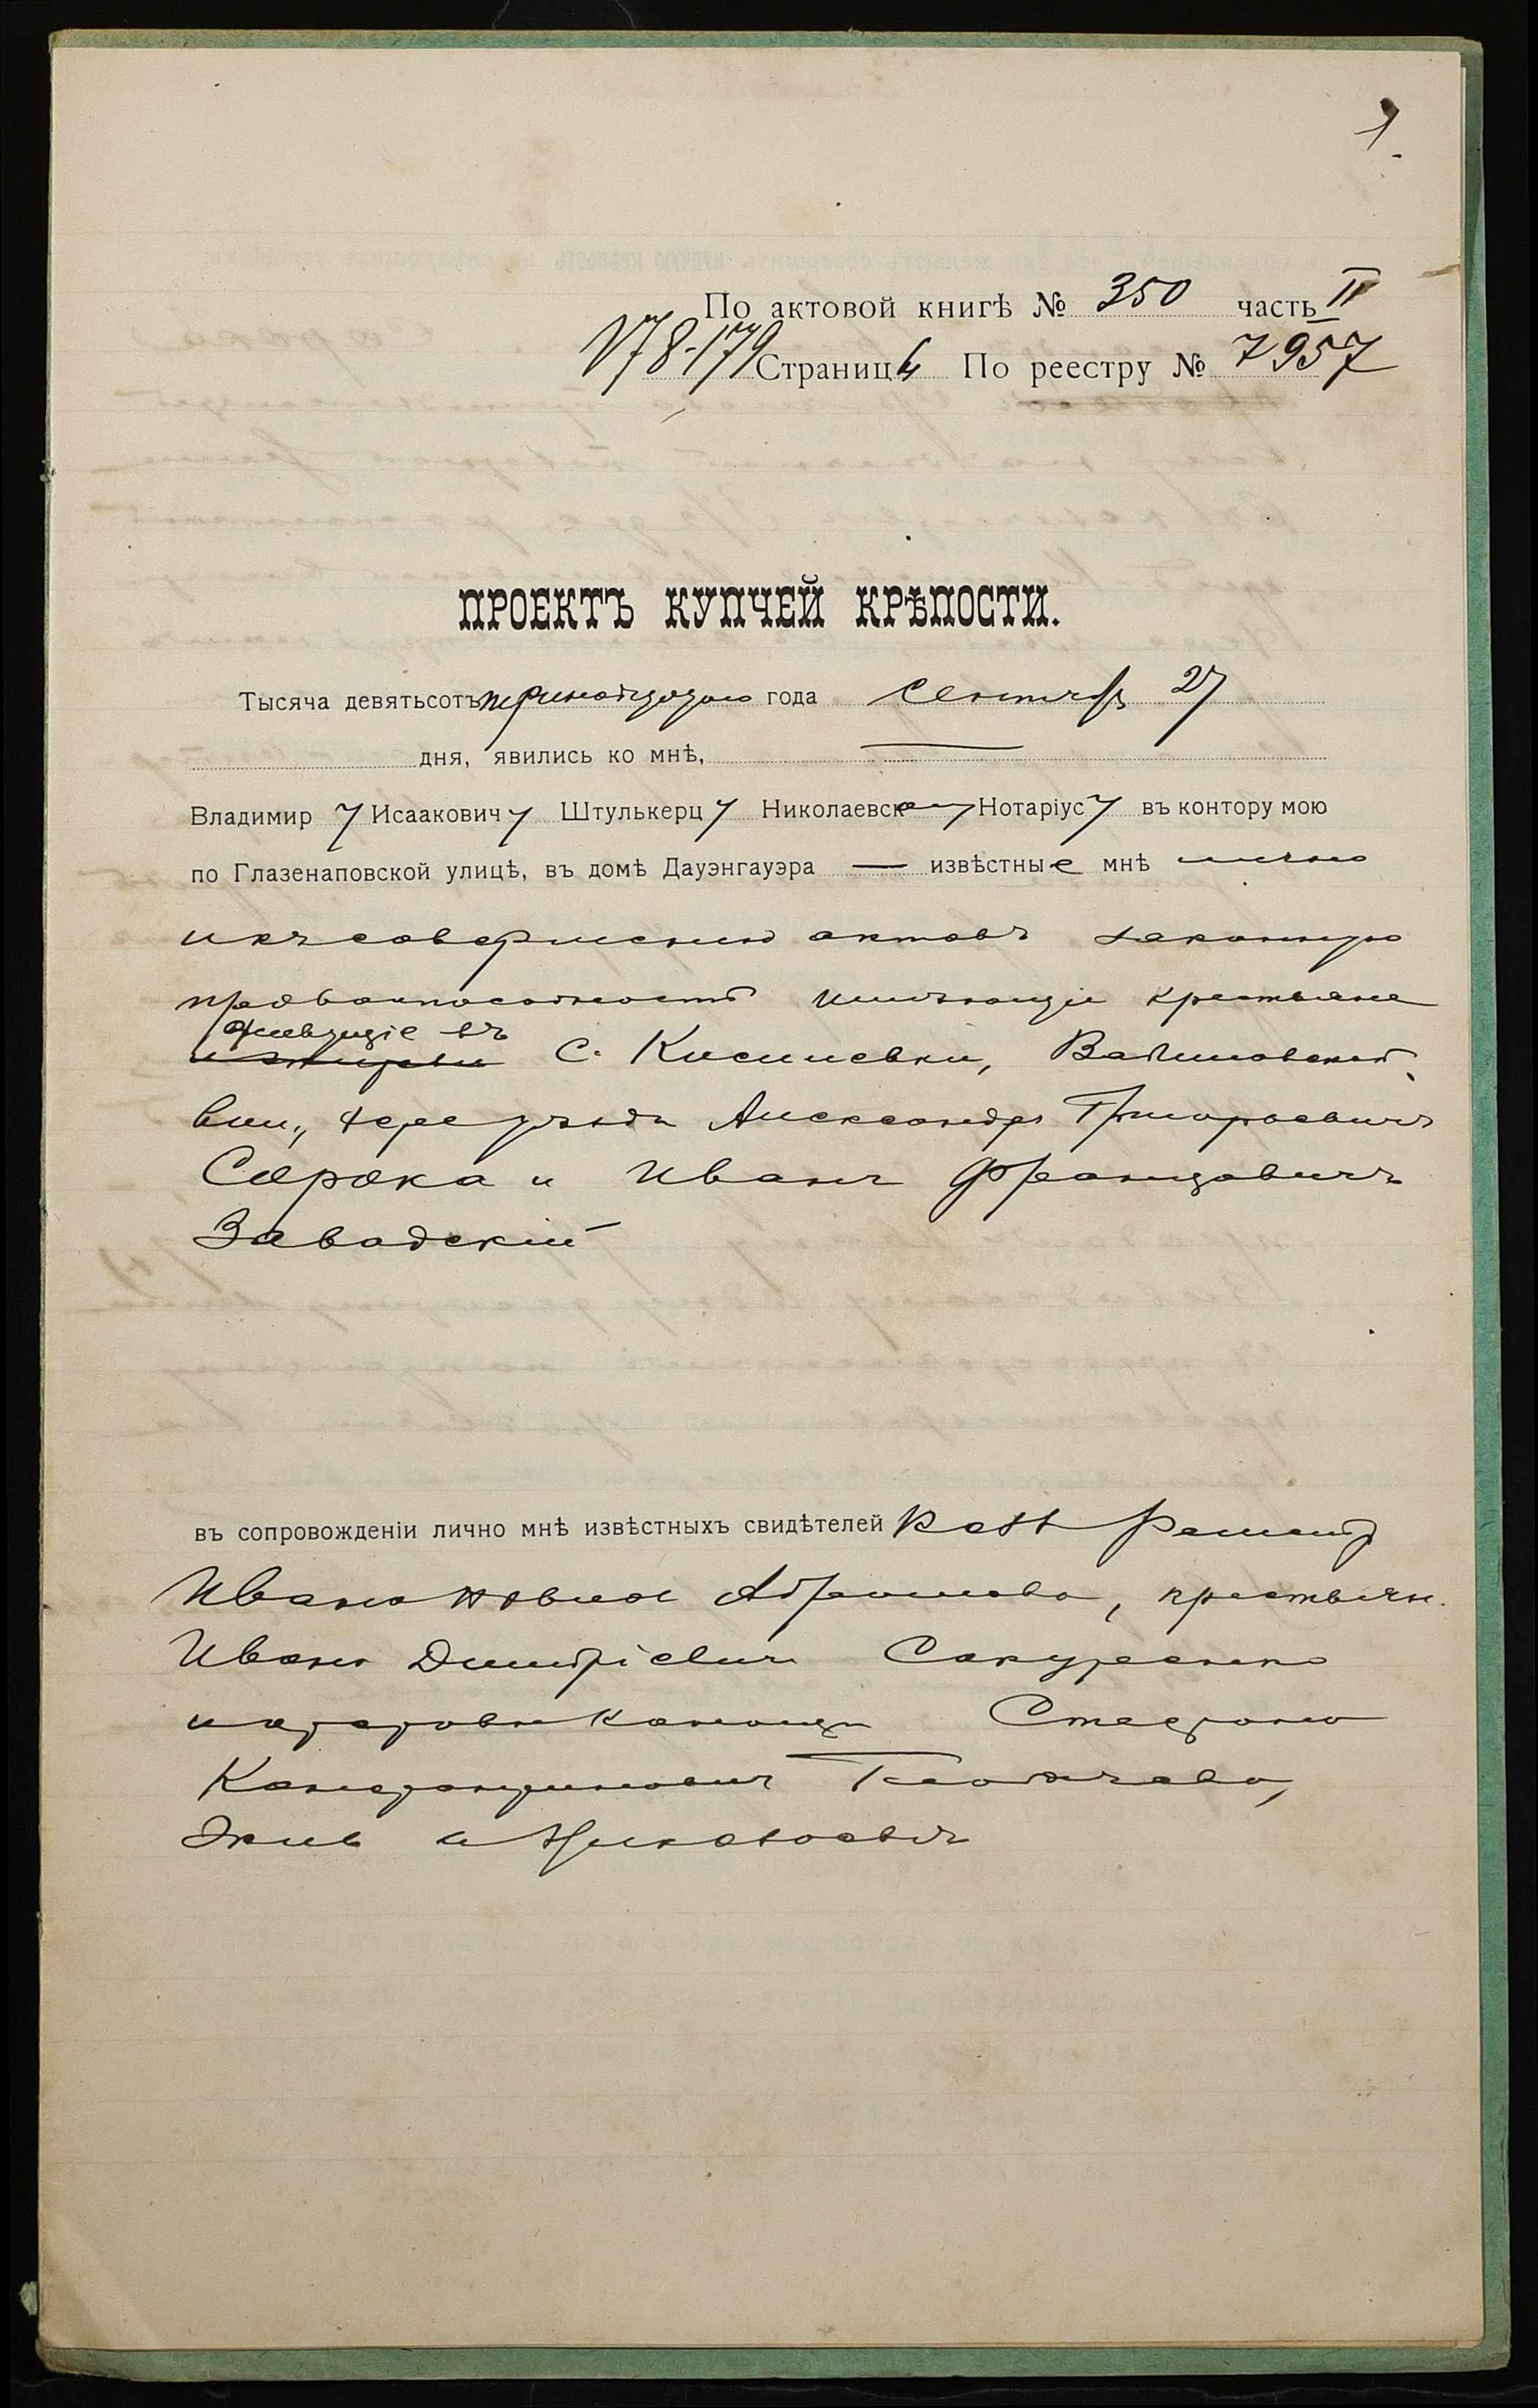 1.
По актовой книгѣ № 350 часть II
178-179 Страницы По реестру № 7957
ПРОЕКТЪ КУПЧЕЙ КРѢПОСТИ.
Тысяча девятьсотъ тринадцатого года сентября 27
дня, явились ко мнѣ,
Владимиру Исааковичу Штулькерцу Николаевскому Нотаріусу въ контору мою
по Глазенаповской улицѣ, въ домѣ Дауэнгауэра — извѣстные мнѣ лично
и къ совершенію актовъ законную
правоспособность имѣющіе крестьяне
живущіе въ
С. Касиневки,
Александръ Григорьевичъ
Сорока и Иванъ Францовичъ
Завадскій
въ сопровожденіи лично мнѣ извѣстныхъ свидѣтелей
Абрамова, крестьян.
Иванъ Дмитріевичъ
Константиновичъ
Жив. въ Николаевѣ